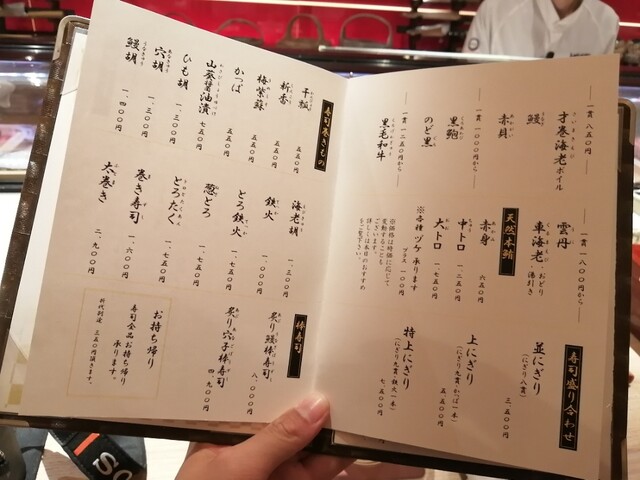 一貫 八五〇円
才巻海老ボイル
鰻
赤貝
一貫 一、〇〇〇円から
黒鮑
のど黒
一貫 一、二五〇円から
黒毛和牛
一貫 一、八〇〇円から
雲丹
車海老 おどり 湯引き
天然本鮪
赤身 六五〇円
中トロ 一、二五〇円
大トロ 一、七五〇円
※各種ヅケ承ります
プラス 一〇〇円
※価格は時価に応じて
変動することも
ございます。
詳しくは本日のおすすめ
をご覧下さい。
寿司盛り合わせ
並にぎり
(にぎり八貫) 三、五〇〇円
上にぎり
(にぎり九貫・かっぱ一本) 五、五〇〇円
特上にぎり
(にぎり九貫・鉄火一本) 七、五〇〇円
寿司巻きもの
干瓢 五五〇円
新香 五五〇円
梅紫蘇 五五〇円
かっぱ 五五〇円
山葵醤油漬 七五〇円
ひも胡 一、三〇〇円
穴胡 一、三〇〇円
鰻胡 一、四〇〇円
海老胡 一、三〇〇円
鉄火 一、〇〇〇円
とろ鉄火 一、七五〇円
葱とろ 一、七五〇円
とろたく 一、七五〇円
巻き寿司 一、六〇〇円
太巻き 二、九〇〇円
棒寿司
炙り鰻棒寿司 八、〇〇〇円
炙り穴子棒寿司 四、九〇〇円
お持ち帰り
寿司全品お持ち帰り
承ります。
折代別途 三五〇円頂きます。
SO